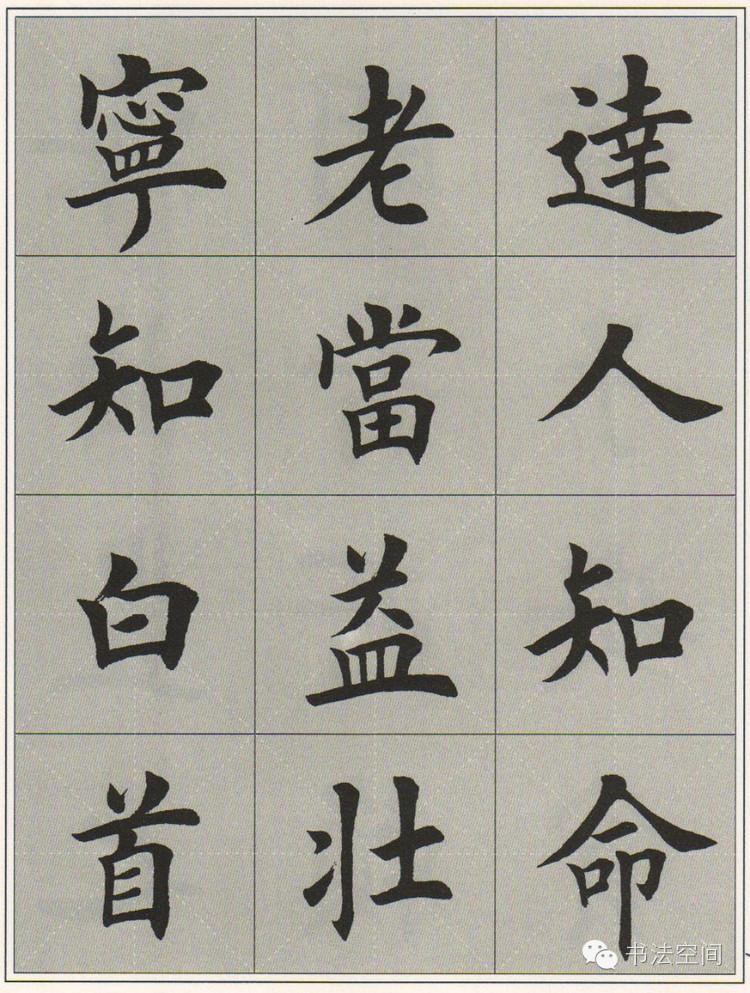 達人知命
老當益壯
寧知白首
书法空间